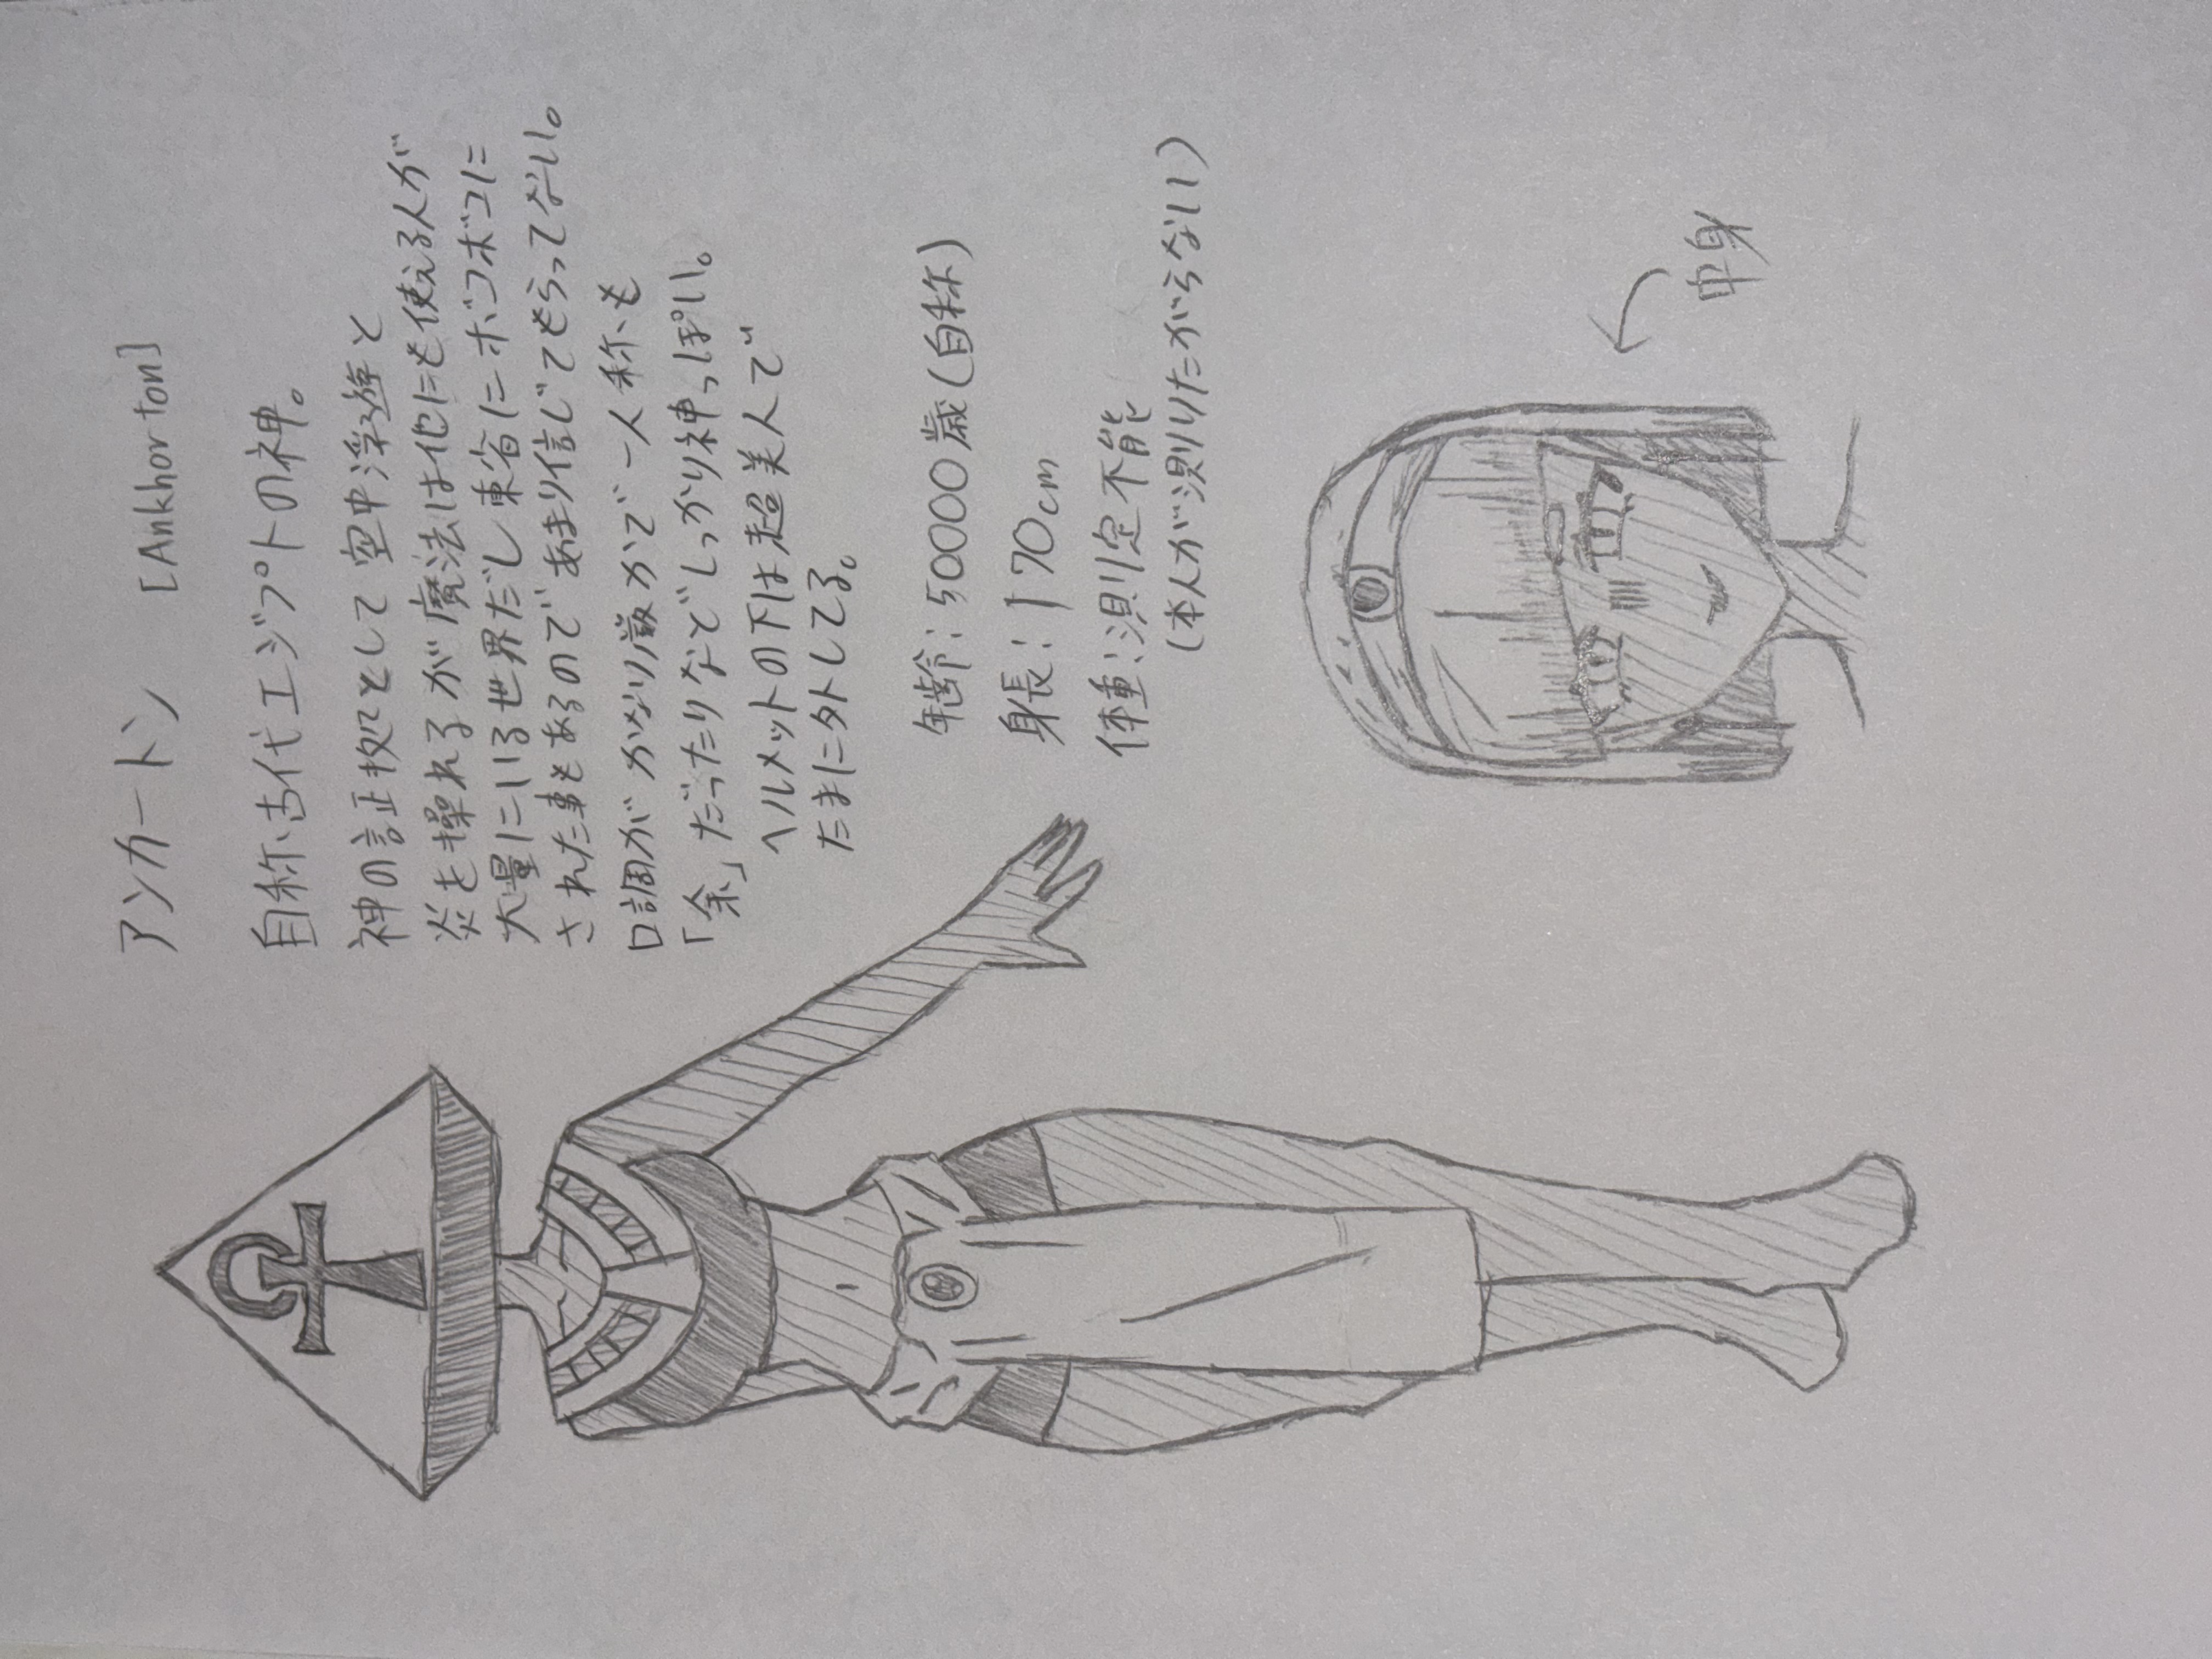 アンカートン [Ankhorton]
自称古代エジプトの神。
神の証拠として空中浮遊と
炎を操れるが魔法は他にも使える人が
大量にいる世界だし東省にボコボコに
された事もあるのであまり信じてもらってない。
口調がかなり厳かで一人称も
「余」だったりなどしっかり神っぽい。
ヘルメットの下は超美人で
たまに外してる。
年齢:50000歳(自称)
身長:170cm
体重:測定不能
(本人が測りたがらない)
中身